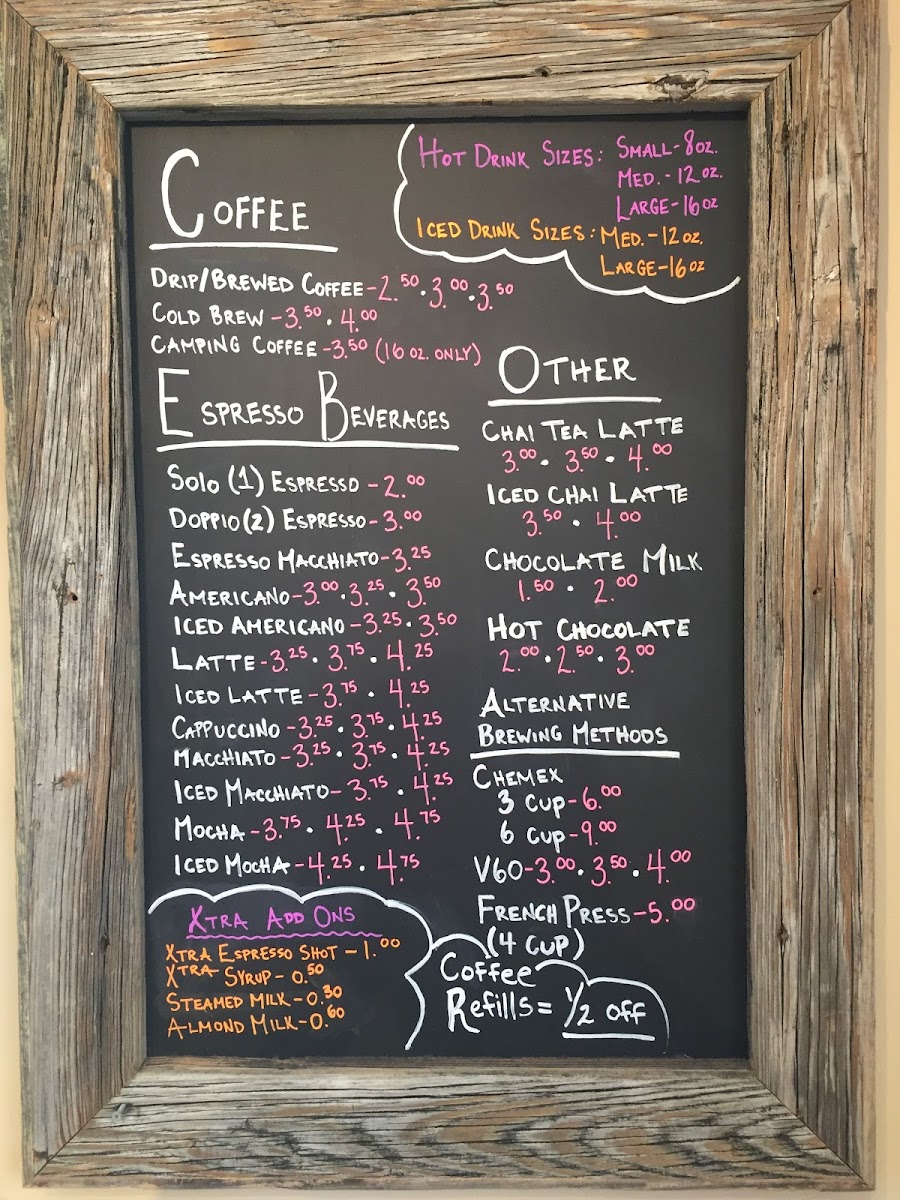 Coffee
Hot Drink Sizes: Small-8oz.
Med.-12oz.
Large-16oz
Iced Drink Sizes: Med.-12oz.
Large-16oz
Drip/Brewed Coffee-2.50·3.00·3.50
Cold Brew-3.50·4.00
Camping Coffee-3.50 (16oz. only)
Espresso Beverages
Solo (1) Espresso-2.00
Doppio(2) Espresso-3.00
Espresso Macchiato-3.25
Americano-3.00·3.25·3.50
Iced Americano-3.25·3.50
Latte-3.25·3.75·4.25
Iced Latte-3.75·4.25
Cappuccino-3.25·3.75·4.25
Macchiato-3.25·3.75·4.25
Iced Macchiato-3.75·4.25
Mocha-3.75·4.25·4.75
Iced Mocha-4.25·4.75
Other
Chai Tea Latte
3.00·3.50·4.00
Iced Chai Latte
3.50·4.00
Chocolate Milk
1.50·2.00
Hot Chocolate
2.00·2.50·3.00
Alternative
Brewing Methods
Chemex
3 cup-6.00
6 cup-9.00
V60-3.00·3.50·4.00
French Press-5.00
(4 cup)
Xtra Add Ons
Xtra Espresso Shot-1.00
Xtra Syrup-0.50
Steamed Milk-0.30
Almond Milk-0.60
Coffee
Refills= 1/2 off